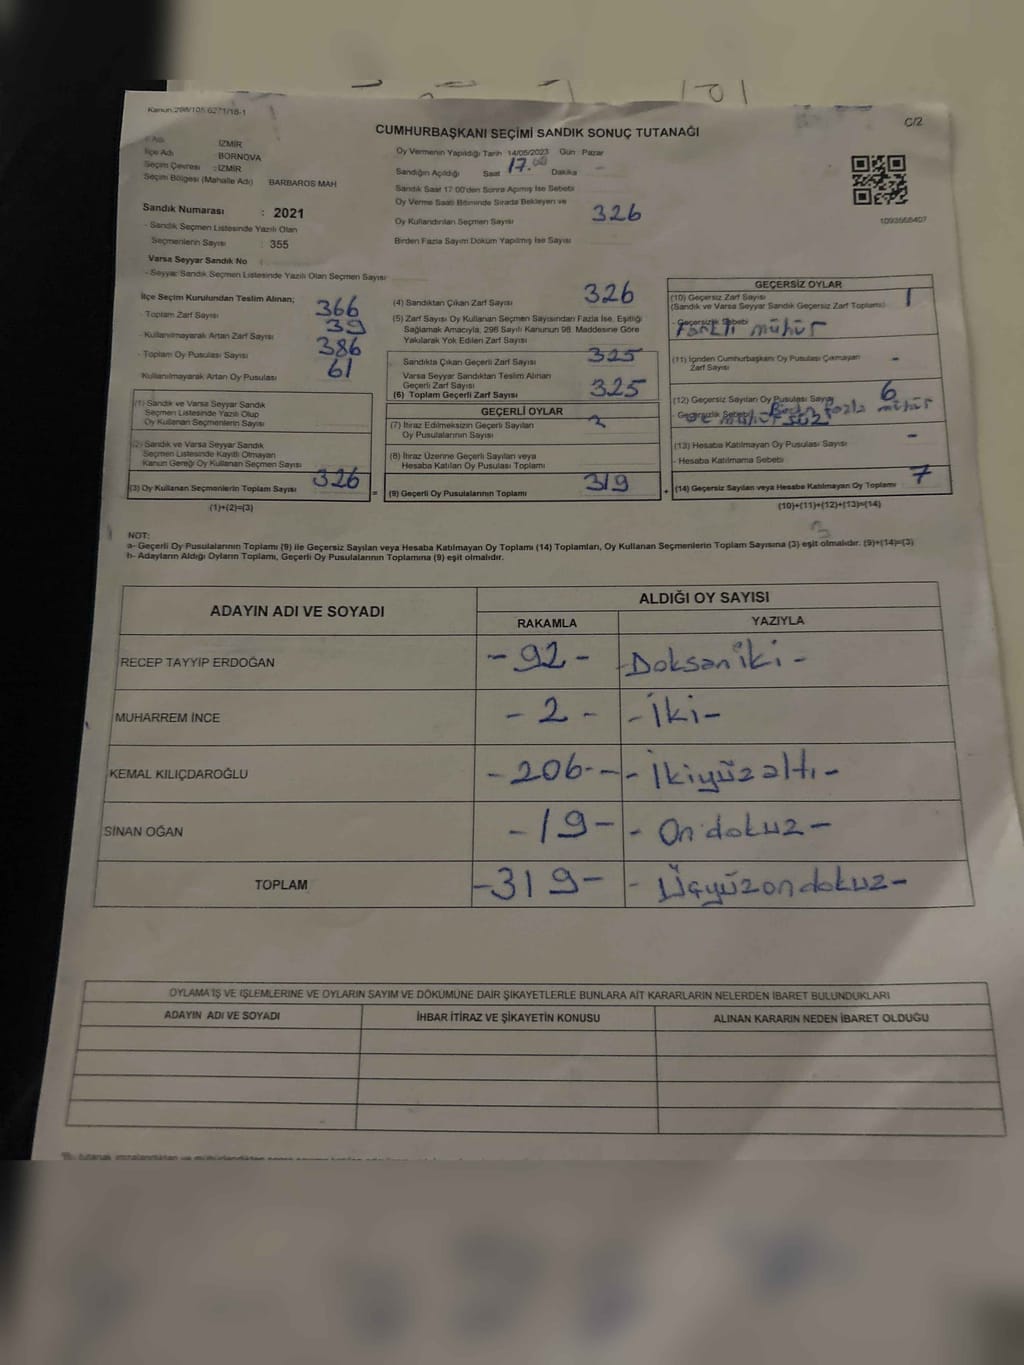 Kanun:298/105 6271/18-1
C/2
CUMHURBAŞKANI SEÇİMİ SANDIK SONUÇ TUTANAĞI
İl Adı : İZMİR
İlçe Adı : BORNOVA
Seçim Çevresi : İZMİR
Seçim Bölgesi (Mahalle Adı) BARBAROS MAH
Sandık Numarası : 2021
- Sandık Seçmen Listesinde Yazılı Olan
Seçmenlerin Sayısı : 355
Varsa Seyyar Sandık No
- Seyyar Sandık Seçmen Listesinde Yazılı Olan Seçmen Sayısı
Oy Vermenin Yapıldığı Tarih 14/05/2023 Gün Pazar
Sandığın Açıldığı Saat 17.00 Dakika
Sandık Saat 17:00'den Sonra Açımış İse Sebebi
Oy Verme Saati Bitiminde Sırada Bekleyen ve
Oy Kullandırılan Seçmen Sayısı 326
Birden Fazla Sayım Döküm Yapılmış İse Sayısı
1093568407
İlçe Seçim Kurulundan Teslim Alınan;
- Toplam Zarf Sayısı 366
- Kullanılmayarak Artan Zarf Sayısı 39
- Toplam Oy Pusulası Sayısı 386
- Kullanılmayarak Artan Oy Pusulası 61
(1) Sandık ve Varsa Seyyar Sandık
Seçmen Listesinde Yazılı Olup
Oy Kullanan Seçmenlerin Sayısı
(2) Sandık ve Varsa Seyyar Sandık
Seçmen Listesinde Kayıtlı Olmayan
Kanun Gereği Oy Kullanan Seçmen Sayısı
(3) Oy Kullanan Seçmenlerin Toplam Sayısı 326
(1)+(2)=(3)
=
(4) Sandıktan Çıkan Zarf Sayısı 326
(5) Zarf Sayısı Oy Kullanan Seçmen Sayısından Fazla İse, Eşitliği
Sağlamak Amacıyla, 298 Sayılı Kanunun 98. Maddesine Göre
Yakılarak Yok Edilen Zarf Sayısı
Sandıkta Çıkan Geçerli Zarf Sayısı 325
Varsa Seyyar Sandıktan Teslim Alınan
Geçerli Zarf Sayısı
(6) Toplam Geçerli Zarf Sayısı 325
GEÇERLİ OYLAR
(7) İtiraz Edilmeksizin Geçerli Sayılan
Oy Pusulalarının Sayısı
(8) İtiraz Üzerine Geçerli Sayılan veya
Hesaba Katılan Oy Pusulası Toplamı
(9) Geçerli Oy Pusulalarının Toplamı 319
+
GEÇERSİZ OYLAR
(10) Geçersiz Zarf Sayısı 1
(Sandık ve Varsa Seyyar Sandık Geçersiz Zarf Toplamı)
- Geçersizlik Sebebi
Farklı mühür
(11) İçinden Cumhurbaşkanı Oy Pusulası Çıkmayan -
Zarf Sayısı
(12) Geçersiz Sayılan Oy Pusulası Sayısı 6
- Geçersizlik Sebebi Birden fazla mühür
ve mühürsüz
(13) Hesaba Katılmayan Oy Pusulası Sayısı -
- Hesaba Katılmama Sebebi
(14) Geçersiz Sayılan veya Hesaba Katılmayan Oy Toplamı 7
(10)+(11)+(12)+(13)=(14)
3
NOT:
a- Geçerli Oy Pusulalarının Toplamı (9) ile Geçersiz Sayılan veya Hesaba Katılmayan Oy Toplamı (14) Toplamları, Oy Kullanan Seçmenlerin Toplam Sayısına (3) eşit olmalıdır. (9)+(14)=(3)
b- Adayların Aldığı Oyların Toplamı, Geçerli Oy Pusulalarının Toplamına (9) eşit olmalıdır.
ADAYIN ADI VE SOYADI
ALDIĞI OY SAYISI
RAKAMLA YAZIYLA
RECEP TAYYİP ERDOĞAN -92- -Doksaniki-
MUHARREM İNCE -2- -İki-
KEMAL KILIÇDAROĞLU -206-- -İkiyüzaltı-
SİNAN OĞAN -19- -Ondokuz-
TOPLAM -319- -Üçyüzondokuz-
OYLAMA İŞ VE İŞLEMLERİNE VE OYLARIN SAYIM VE DÖKÜMÜNE DAİR ŞİKAYETLERLE BUNLARA AİT KARARLARIN NELERDEN İBARET BULUNDUKLARI
ADAYIN ADI VE SOYADI İHBAR İTİRAZ VE ŞİKAYETİN KONUSU ALINAN KARARIN NEDEN İBARET OLDUĞU